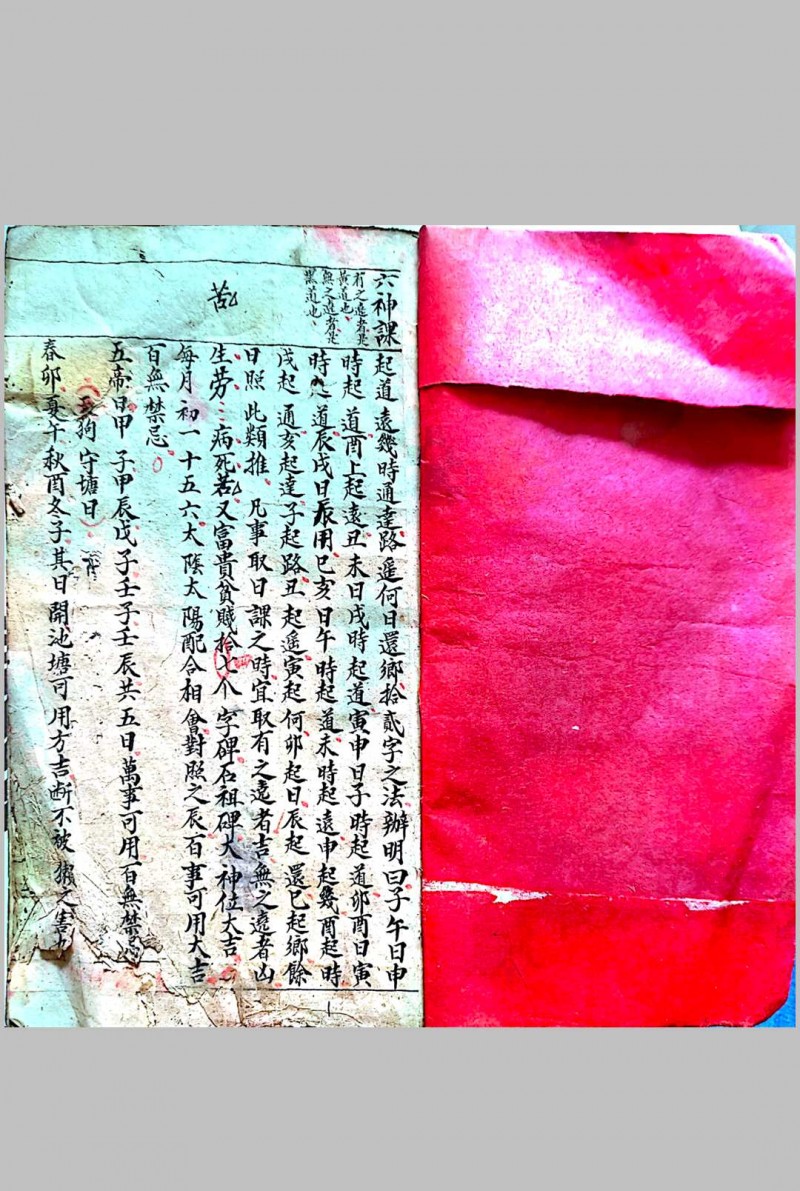 六神課
有之遶者是
黃道也
無之遶者是
黑道也
苦
起道遠幾時通達路遥何日還鄉拾貳字之法辦明曰子午日申
時起道酉上起遠丑未日戌時起道寅申日子時起道卯酉日寅
時起道辰戌日辰用巳亥日午時起道未時起遠申起幾酉起時
戌起通亥起達子起路丑起遥寅起何卯起日辰起還巳起鄉餘
日照此類推凡事取日課之時宜取有之遶者吉無之遶者凶
生劳三病死苦又富貴貧賤拾七个字碑石祖碑大神位大吉
每月初一十五六太陰太陽配合相會對照之辰百事可用大吉
百無禁忌
五帝日甲子甲辰戊子壬子壬辰共五日萬事可用百無禁忌
守塘日
春卯夏午秋酉冬子其日開池塘可用方吉断不被獺之害